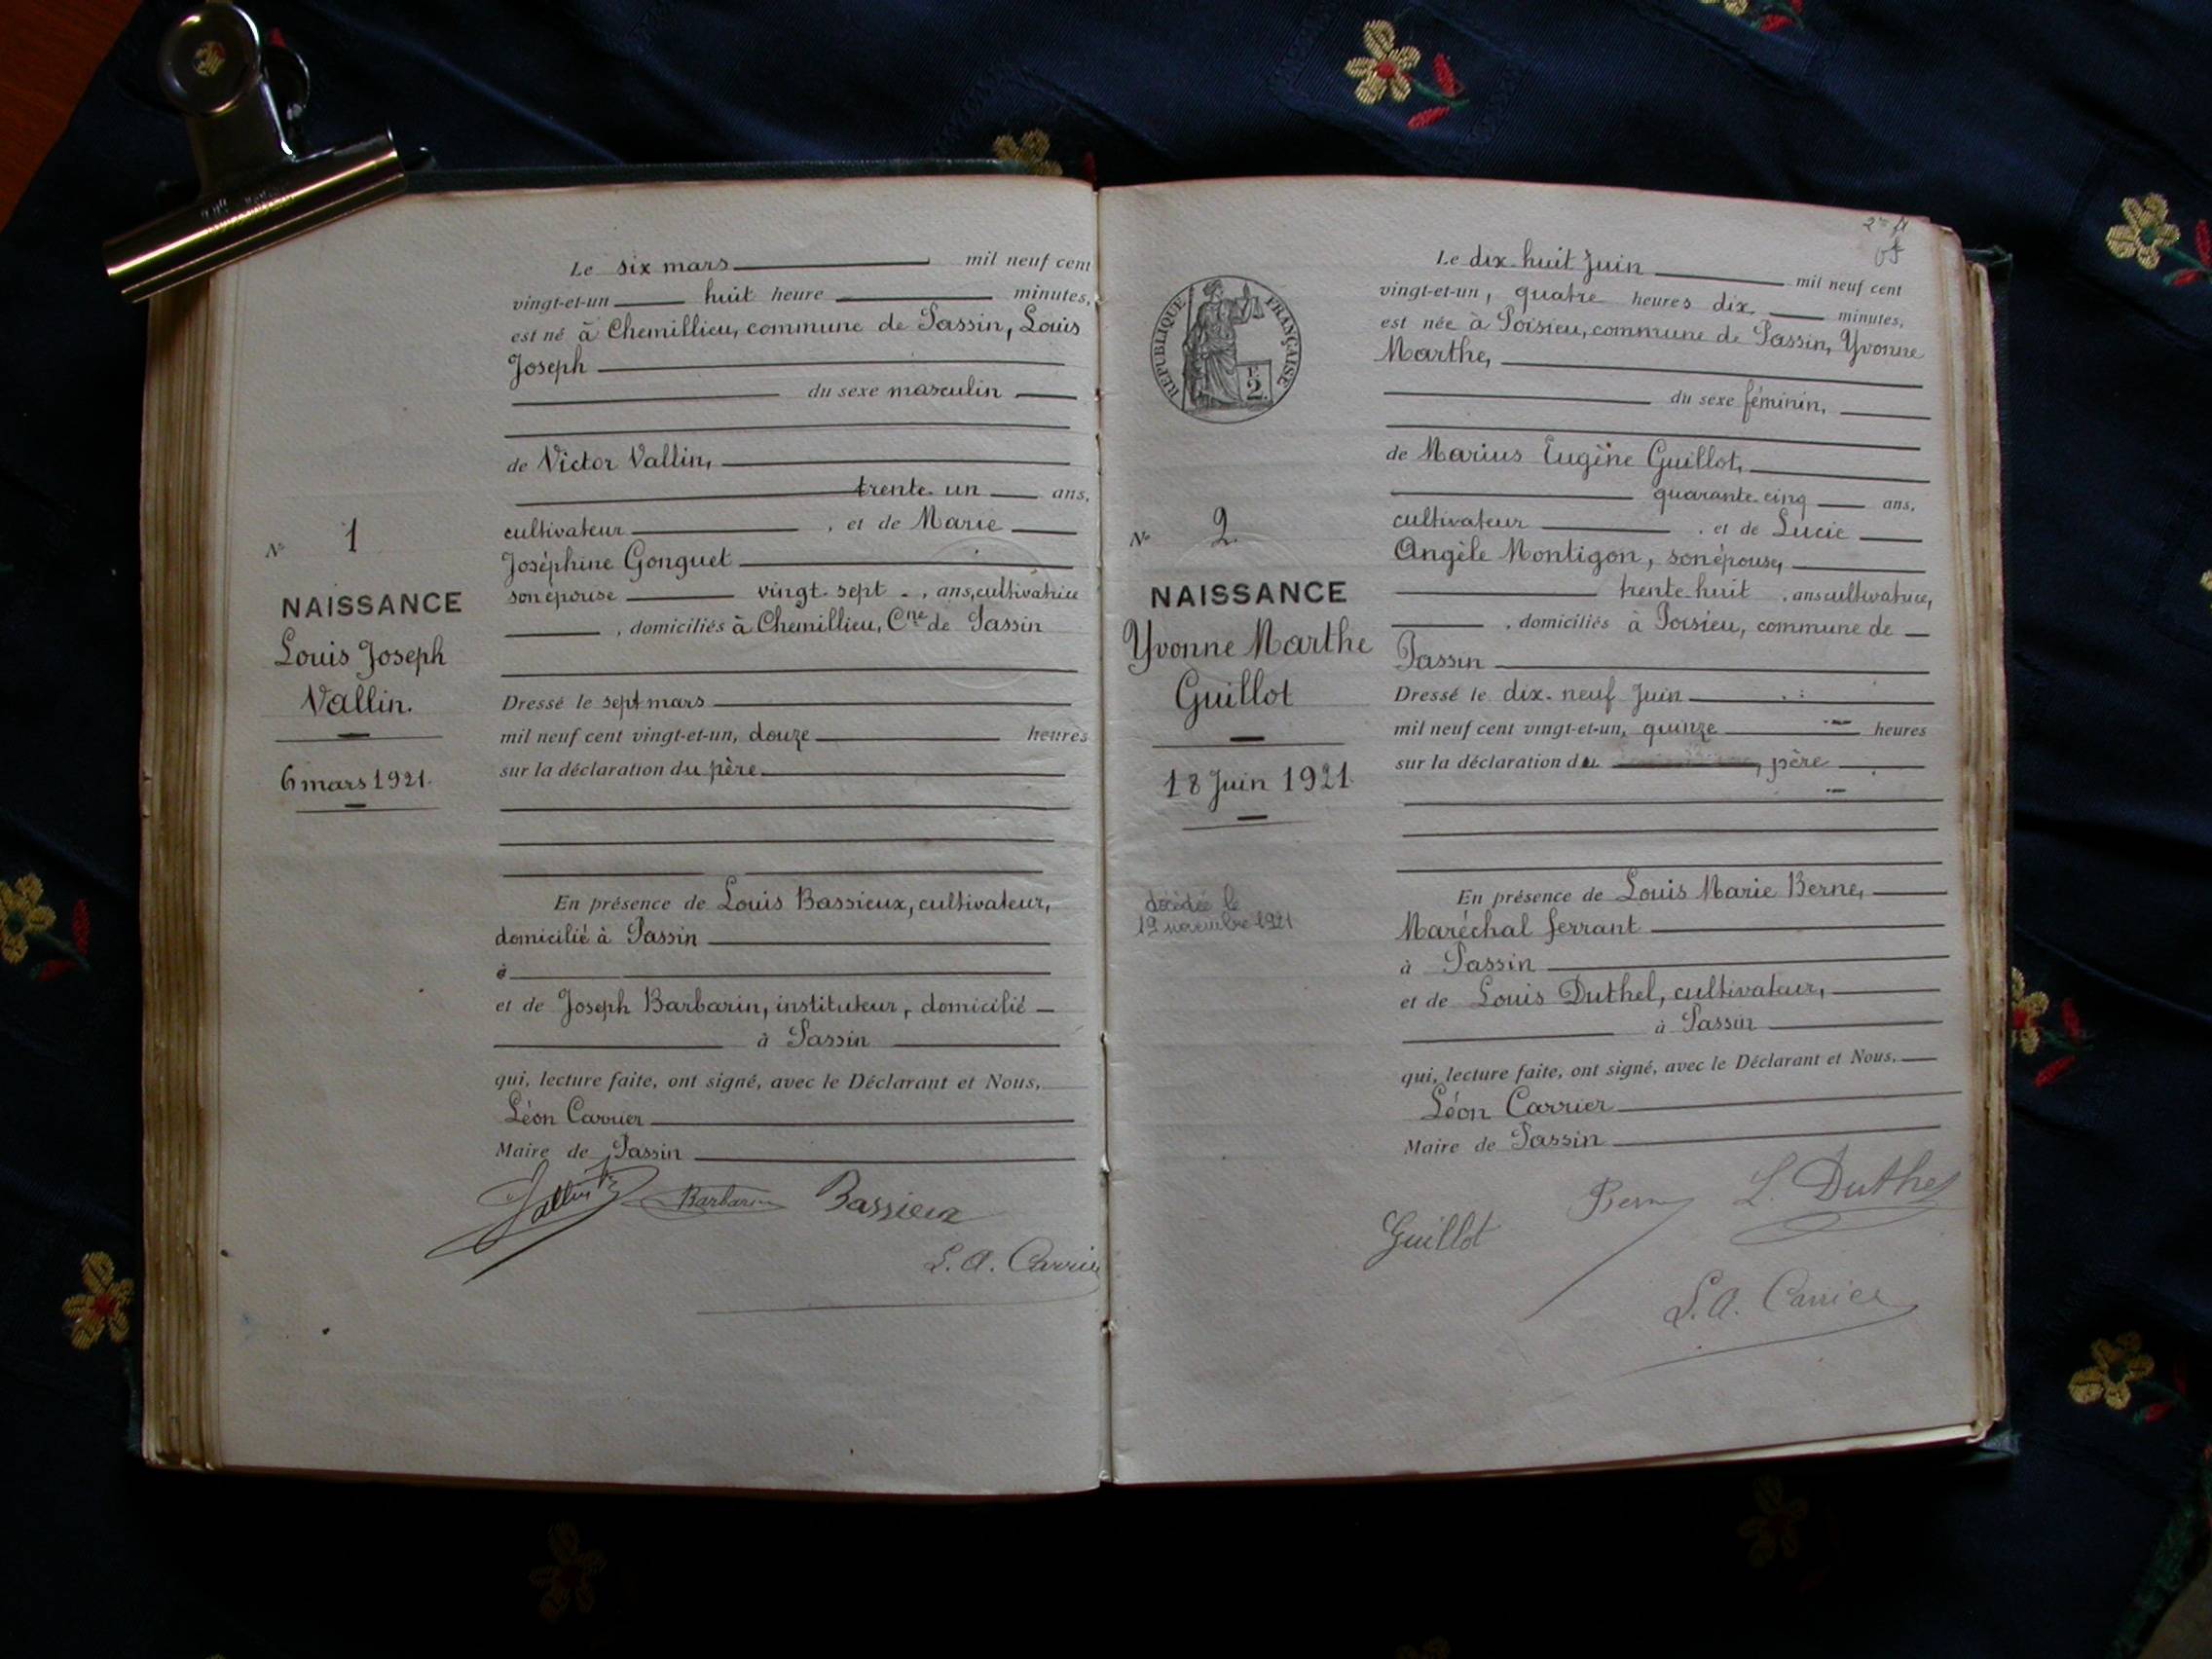 Le six mars mil neuf cent
vingt-et-un huit heure minutes,
est né à Chemillieu, commune de Passin, Louis
Joseph
du sexe masculin
de Victor Vallin,
trente un ans,
cultivateur , et de Marie
Joséphine Gonguet
son épouse vingt-sept , ans, cultivatrice
, domiciliés à Chemillieu, Cne de Passin
Dressé le sept mars
mil neuf cent vingt-et-un, douze heures
sur la déclaration du père
En présence de Louis Bassieux, cultivateur,
domicilié à Passin
à
et de Joseph Barbarin, instituteur, domicilié
à Passin
qui, lecture faite, ont signé, avec le Déclarant et Nous,
Léon Carrier
Maire de Passin
Vallin Barbarin Bassieux
L. A. Carrier
No 1
NAISSANCE
Louis Joseph
Vallin.
6 mars 1921.
RÉPUBLIQUE FRANÇAISE
2
Le dix-huit Juin mil neuf cent
vingt-et-un, quatre heures dix minutes,
est née à Poisieu, commune de Passin, Yvonne
Marthe,
du sexe féminin,
de Marius Eugène Guillot,
quarante-cinq ans,
cultivateur , et de Lucie
Angèle Montigon, son épouse,
trente-huit , ans cultivatrice,
, domiciliés à Poisieu, commune de
Passin
Dressé le dix-neuf Juin
mil neuf cent vingt-et-un, quinze heures
sur la déclaration du père
En présence de Louis Marie Berne,
Maréchal ferrant
à Passin
et de Louis Duthel, cultivateur,
à Passin
qui, lecture faite, ont signé, avec le Déclarant et Nous,
Léon Carrier
Maire de Passin
Guillot Berne L. Duthel
L. A. Carrier
No 2
NAISSANCE
Yvonne Marthe
Guillot
18 Juin 1921
décédée le
19 novembre 1921